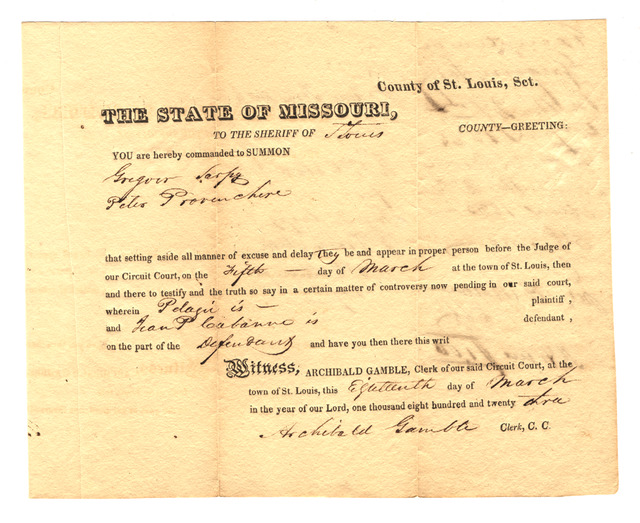 County of St. Louis, Sct.
THE STATE OF MISSOURI,
TO THE SHERIFF OF St Louis COUNTY—GREETING:
YOU are hereby commanded to SUMMON
Gregoir Sarpy
Peter Provenchere
that setting aside all manner of excuse and delay they be and appear in proper person before the Judge of
our Circuit Court, on the Fifth — day of March at the town of St. Louis, then
and there to testify and the truth so say in a certain matter of controversy now pending in our said court,
wherein Pelagie is — plaintiff,
and Jean P Cabanne is defendant,
on the part of the Defendant and have you then there this writ
Witness, ARCHIBALD GAMBLE, Clerk of our said Circuit Court, at the
town of St. Louis, this Eighteenth day of March
in the year of our Lord, one thousand eight hundred and twenty
Archibald Gamble Clerk, C. C.